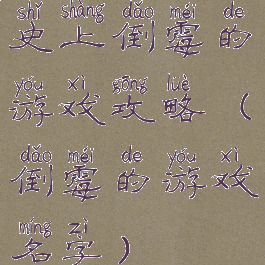 shǐ shàng dǎo méi de
史上倒霉的
yóu xì gōng lüè
游戏攻略（
dǎo méi de yóu xì
倒霉的游戏
míng zì
名字）